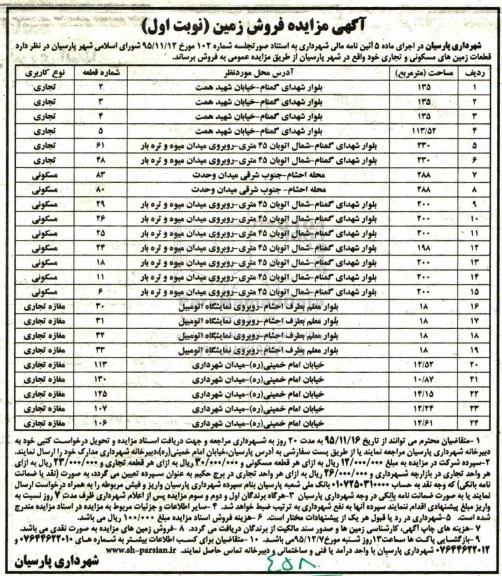 آگهی مزایده فروش زمین (نوبت اول)
شهرداری پارسیان در اجرای ماده ۵ آئین نامه مالی شهرداری به استناد صورتجلسه شماره ۱۰۲ مورخ ۹۵/۱۱/۱۲ شورای اسلامی شهر پارسیان در نظر دارد
قطعات زمین های مسکونی و تجاری خود واقع در شهر پارسیان از طریق مزایده عمومی به فروش برساند.
ردیف مساحت (مترمربع) آدرس محل موردنظر شماره قطعه نوع کاربری
۱ ۱۳۵ بلوار شهدای گمنام-خیابان شهید همت ۲ تجاری
۲ ۱۳۵ بلوار شهدای گمنام-خیابان شهید همت ۳ تجاری
۳ ۱۳۵ بلوار شهدای گمنام-خیابان شهید همت ۴ تجاری
۴ ۱۱۳/۵۲ بلوار شهدای گمنام-خیابان شهید همت ۵ تجاری
۵ ۲۳۰ بلوار شهدای گمنام-شمال اتوبان ۴۵ متری-روبروی میدان میوه و تره بار ۶۱ تجاری
۶ ۲۳۰ بلوار شهدای گمنام-شمال اتوبان ۴۵ متری-روبروی میدان میوه و تره بار ۴۸ تجاری
۷ ۲۸۸ محله احشام-جنوب شرقی میدان وحدت ۸۳ مسکونی
۸ ۲۸۸ محله احشام- جنوب شرقی میدان وحدت ۸۰ مسکونی
۹ ۲۰۰ بلوار شهدای گمنام-شمال اتوبان ۴۵ متری-روبروی میدان میوه و تره بار ۲۹ مسکونی
۱۰ ۲۰۰ بلوار شهدای گمنام-شمال اتوبان ۴۵ متری-روبروی میدان میوه و تره بار ۲۶ مسکونی
۱۱ ۲۰۰ بلوار شهدای گمنام-شمال اتوبان ۴۵ متری-روبروی میدان میوه و تره بار ۲۵ مسکونی
۱۲ ۱۹۸ بلوار شهدای گمنام-شمال اتوبان ۴۵ متری-روبروی میدان میوه و تره بار ۲۴ مسکونی
۱۳ ۲۰۰ بلوار شهدای گمنام-شمال اتوبان ۴۵ متری-روبروی میدان میوه و تره بار ۱۸ مسکونی
۱۴ ۲۰۰ بلوار شهدای گمنام-شمال اتوبان ۴۵ متری-روبروی میدان میوه و تره بار ۱۱ مسکونی
۱۵ ۲۰۰ بلوار شهدای گمنام-شمال اتوبان ۴۵ متری-روبروی میدان میوه و تره بار ۶ مسکونی
۱۶ ۱۸ بلوار معلم بطرف احشام-روبروی نمایشگاه اتومبیل ۳۰ مغازه تجاری
۱۷ ۱۸ بلوار معلم بطرف احشام-روبروی نمایشگاه اتومبیل ۳۱ مغازه تجاری
۱۸ ۱۸ بلوار معلم بطرف احشام-روبروی نمایشگاه اتومبیل ۳۲ مغازه تجاری
۱۹ ۱۸ بلوار معلم بطرف احشام-روبروی نمایشگاه اتومبیل ۳۳ مغازه تجاری
۲۰ ۱۲/۵۲ خیابان امام خمینی(ره)-میدان شهرداری ۱۱۳ مغازه تجاری
۲۱ ۱۰/۸۷ خیابان امام خمینی(ره)-میدان شهرداری ۱۳۰ مغازه تجاری
۲۲ ۱۴/۱۵ خیابان امام خمینی(ره)-میدان شهرداری ۱۲۵ مغازه تجاری
۲۳ ۱۲/۲۴ خیابان امام خمینی(ره)-میدان شهرداری ۱۰۷ مغازه تجاری
۲۴ ۱۲/۶۱ خیابان امام خمینی(ره)-میدان شهرداری ۱۰۶ مغازه تجاری
۱ -متقاضیان محترم می توانند از تاریخ ۹۵/۱۱/۱۶ به مدت ۲۰ روز به شهرداری مراجعه و جهت دریافت اسناد مزایده و تحویل درخواست کتبی خود به
دبیرخانه شهرداری پارسیان مراجعه نمایند یا از طریق پست سفارشی به آدرس پارسیان،خیابان امام خمینی(ره)،دبیرخانه شهرداری مدارک خود را ارسال نمایند.
۲-سپرده شرکت در مزایده به مبلغ ۱۲/۰۰۰/۰۰۰ ریال به ازای هر قطعه مسکونی و ۳۰/۰۰۰/۰۰۰ ریال به ازای هر قطعه تجاری و ۲۳/۰۰۰/۰۰۰ ریال به ازای
هر واحد تجاری در بازارچه شهرداری و ۲۶/۰۰۰/۰۰۰ ریال به ازای هر واحد تجاری در برج حکیم به عنوان سپرده تعیین می گردد، به صورت (نقد یا ضمانت
نامه بانکی) که وجه نقد به حساب بانک ملی شعبه پارسیان بنام سپرده شهرداری پارسیان واریز و فیش مربوطه را به همراه درخواست ارسال
نمایند یا به صورت ضمانت نامه بانکی در وجه شهرداری پارسیان ۳-هرگاه برندگان اول و دوم و سوم مزایده پس از اعلام شهرداری ظرف مدت ۷ روز نسبت به
واریز مبلغ پیشنهادی اقدام ننمایند سپرده آنها به نفع شهرداری به ترتیب ضبط خواهد شد. ۴ -سایر اطلاعات و جزئیات مربوط به مزایده در اسناد مزایده مندرج
شده است. ۵-شهرداری در رد یا قبول هر یک از پیشنهادات مختار است. ۶- هزینه فروش اسناد مزایده مبلغ ۱۰۰/۰۰۰ ریال می باشد.
۷ -هزینه های چاپ آگهی، کارشناسی زمین ها و صدور سند مالکیت از برندگان دریافت می گردد. ۸ -فروش زمین های مزایده به صورت نقدی می باشد.
۹-بازگشایی پاکت ها ساعت۱۳روز شنبه مورخ۹۵/۱۲/۷می باشد. ۱۰ -متقاضیان برای کسب اطلاعات بیشتر به شماره های ۰۷۶۴۴۶۲۲۰۱۰ و
۰۷۶۴۴۶۲۲۰۱۲ شهرداری پارسیان با واحد درآمد یا فنی و ساختمانی و دبیرخانه تماس حاصل نمایند. www.sh-parsian.ir
شهرداری پارسیان
۴۵۸